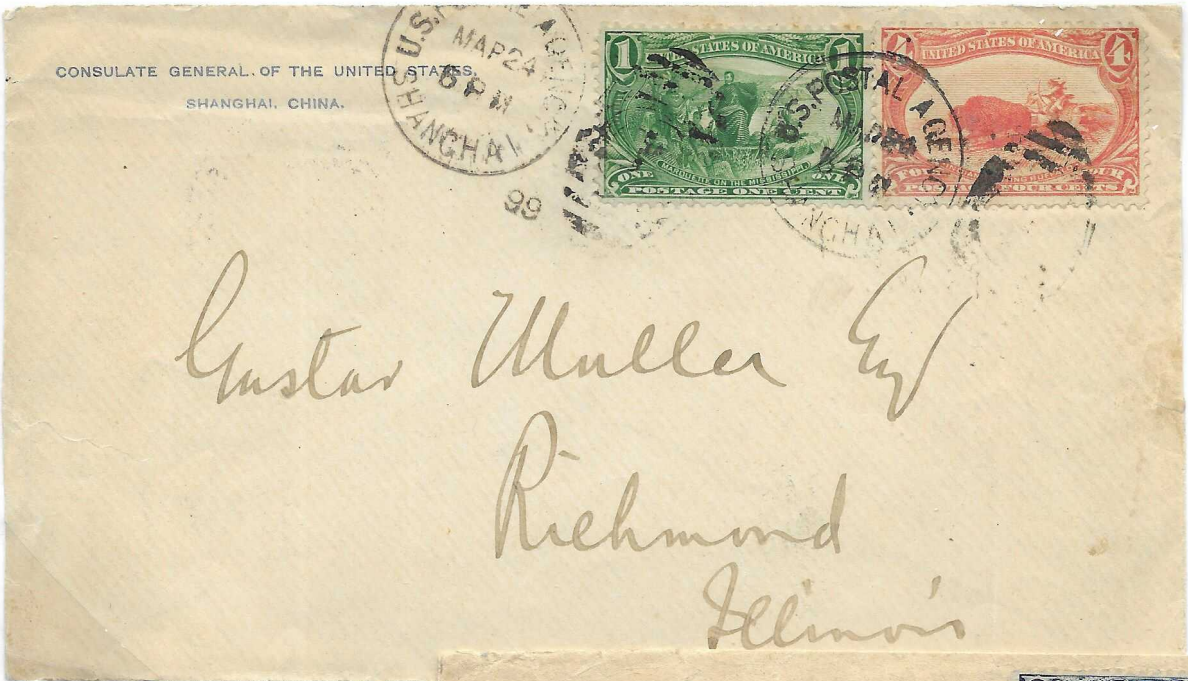 CONSULATE GENERAL. OF THE UNITED STATES.
SHANGHAI, CHINA.
U.S. POSTAL AGENCY
MAR 24
6 PM
SHANGHAI
99
1 UNITED STATES OF AMERICA 1
MARQUETTE ON THE MISSISSIPPI.
ONE ONE
POSTAGE ONE CENT
U.S. POSTAL AGENCY
SHANGHAI
4 UNITED STATES OF AMERICA 4
FOUR FOUR
POSTAGE FOUR CENTS
Gustav Muller Esq
Richmond
Illinois